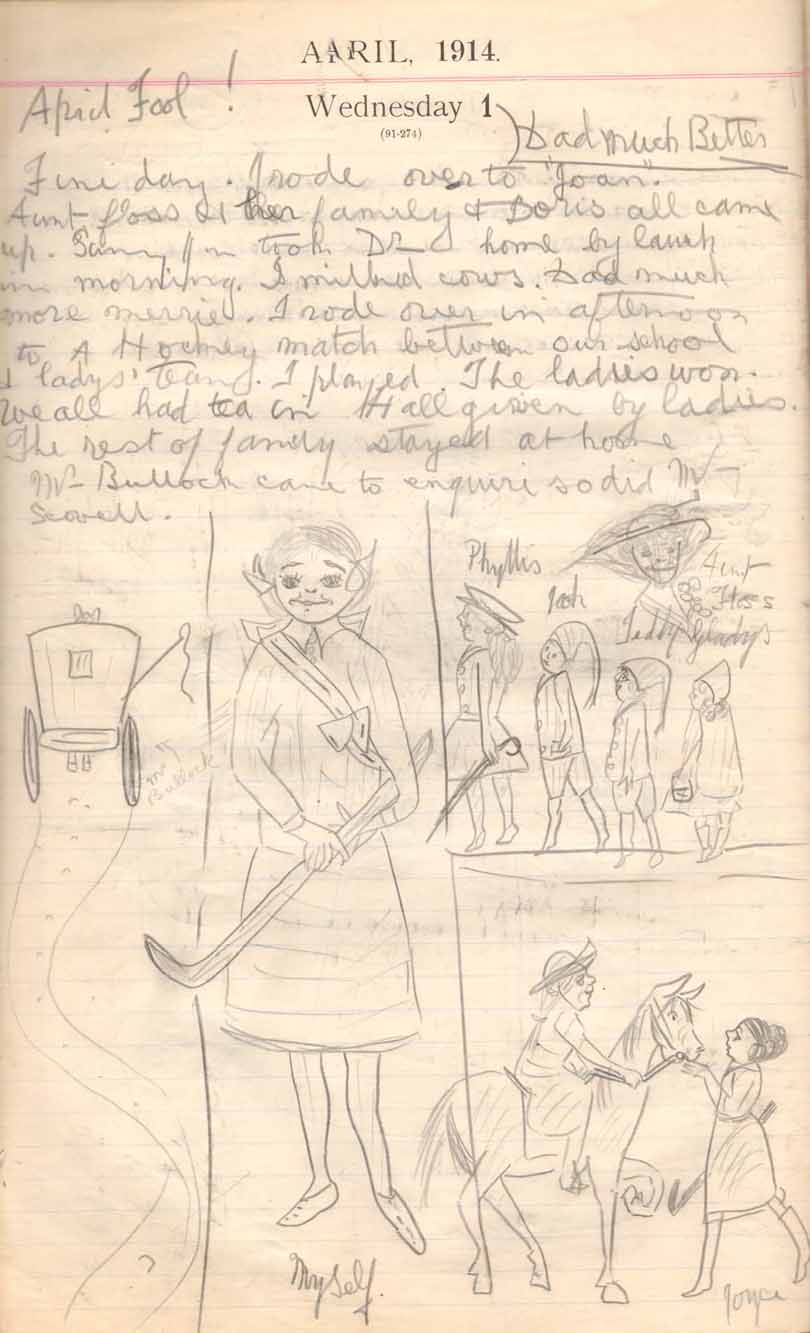 AARIL, 1914.
April Fool !
Wednesday 1
(91-274)
Dad much Better
Fine day. I rode over to "Joan".
Aunt floss & her family & Boris all came
up. took Dr home by
in morning. I milked cows. Dad much
more merrie. I rode over in afternoon
to A Hockey match between our school
& ladys' team. I played. The ladies won.
We all had tea in Hall given by ladies.
The rest of family stayed at home
Mr Bullock came to enquiri so did Mr
Scovell.
Phyllis
Jack
Aunt
Floss
Teddy Gladys
Mr
Bullock
Myself.
Joyce